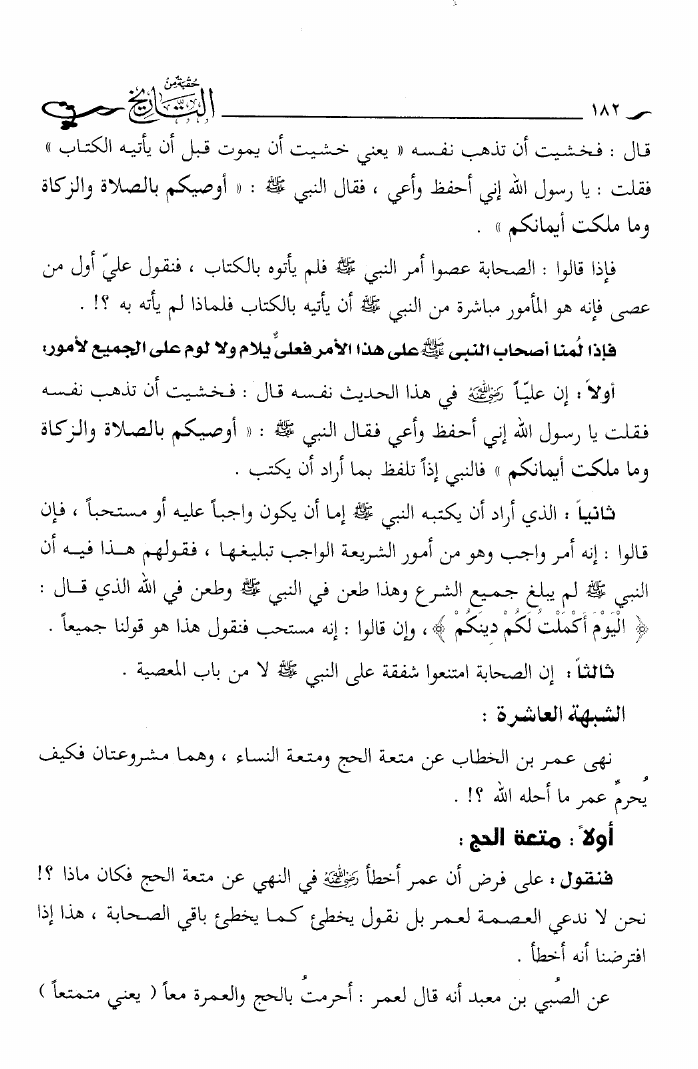 ١٨٢
حقبة من التاريخ
قال : فـخـشيـت أن تذهب نفـسـه « يعني خـشيت أن يموت قـبل أن يأتيـه الكتاب »
فقلت : يا رسول الله إني أحفظ وأعي ، فقال النبي ﷺ : « أوصيكم بالصلاة والزكاة
وما ملكت أيمانكم » .
فإذا قالوا : الصحابة عصوا أمر النبي ﷺ فلم يأتوه بالكتاب ، فنقول عليّ أول من
عصى فإنه هو المأمور مباشرة من النبي ﷺ أن يأتيه بالكتاب فلماذا لم يأته به ؟! .
فإذا لُمنا أصحاب النبى ﷺ على هذا الأمر فعلىٌّ يلام ولا لوم على الجميع لأمور:
أولاً : إن عليّـاً رضي الله عنه في هذا الحديث نفسـه قـال : فـخشيت أن تذهب نفـسـه
فـقلت يا رسول الله إني أحفظ وأعي فـقال النبي ﷺ : « أوصيكم بالصلاة والزكاة
وما ملكت أيمانكم » فالنبي إذاً تلفظ بما أراد أن يكتب .
ثانياً : الذي أراد أن يكتبه النبي ﷺ إما أن يكون واجباً عليه أو مستحباً ، فإن
قالوا : إنه أمر واجب وهو من أمور الشريعة الواجب تبليغـها ، فـقولهم هـذا فيـه أن
النبي ﷺ لم يبلغ جميع الشرع وهذا طعن في النبي ﷺ وطعن في الله الذي قـال :
﴿ الْيَوْمَ أَكْمَلْتُ لَكُمْ دِينَكُمْ ﴾ ، وإن قالوا : إنه مستحب فنقول هذا هو قولنا جميعاً .
ثالثاً : إن الصحابة امتنعوا شفقة على النبي ﷺ لا من باب المعصية .
الشبهة العاشرة :
نهى عـمر بن الخطاب عن متعة الحج ومتعة النساء ، وهما مشروعتان فكيف
يُحرمُ عمر ما أحله الله ؟! .
أولاً : متعة الحج :
فنقول : على فرض أن عمر أخطأ رضي الله عنه في النهي عن متعة الحج فكان ماذا ؟!
نحن لا ندعي العـصمة لعـمر بل نقول يخطئ كـما يخطئ باقي الصحابة ، هذا إذا
افترضنا أنه أخطأ .
عن الصُبي بن معبد أنه قال لعمر : أحرمتُ بالحج والعمرة معاً ( يعني متمتعاً )